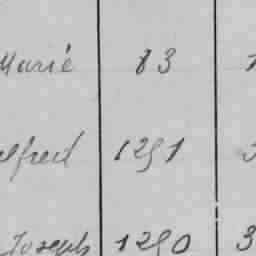 Marie 83
Alfred 1251
Joseph 1250 3